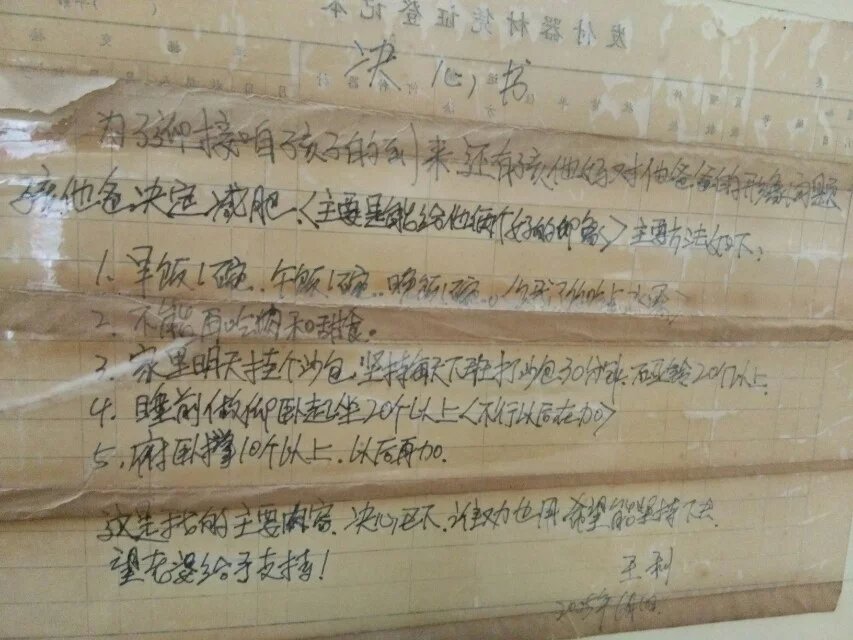 发付器材凭证登记本
决心书
为了迎接咱孩子的到来还有孩他妈对他爸爸的形象问题
孩他爸决定减肥、<主要是能给他俩个好的印象>主要方法如下:
1. 早饭1碗、午饭1碗、晚饭1碗、
2. 不能再吃烟和甜食。
3. 家里明天挂个沙包,坚持每天下班打沙包30分钟、20个以上.
4. 睡前做仰卧起坐20个以上<不行以后在加>
5. 俯卧撑10个以上、以后再加.
这是我的主要内容、决心已下、希望能坚持下去
望老婆给予支持!
王利